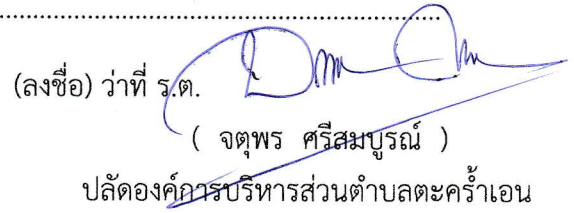 (ลงชื่อ) ว่าที่ ร.ต.
( จตุพร ศรีสมบูรณ์ )
ปลัดองค์การบริหารส่วนตำบลตะคร้ำเอน